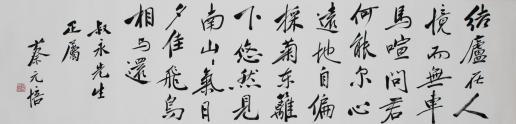 结廬在人
境而無車
馬喧問君
何能尔心
遠地自偏
採菊东籬
下悠然見
南山山氣日
夕佳飛鳥
相与還
叔永先生
正屬
蔡元培